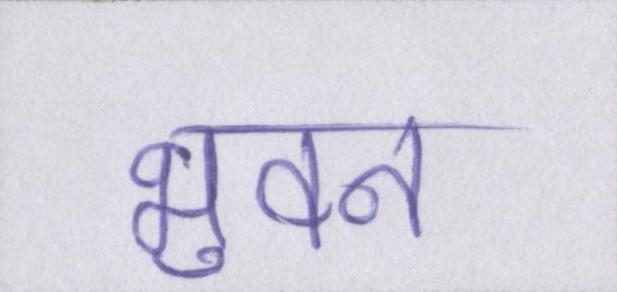 भुवन